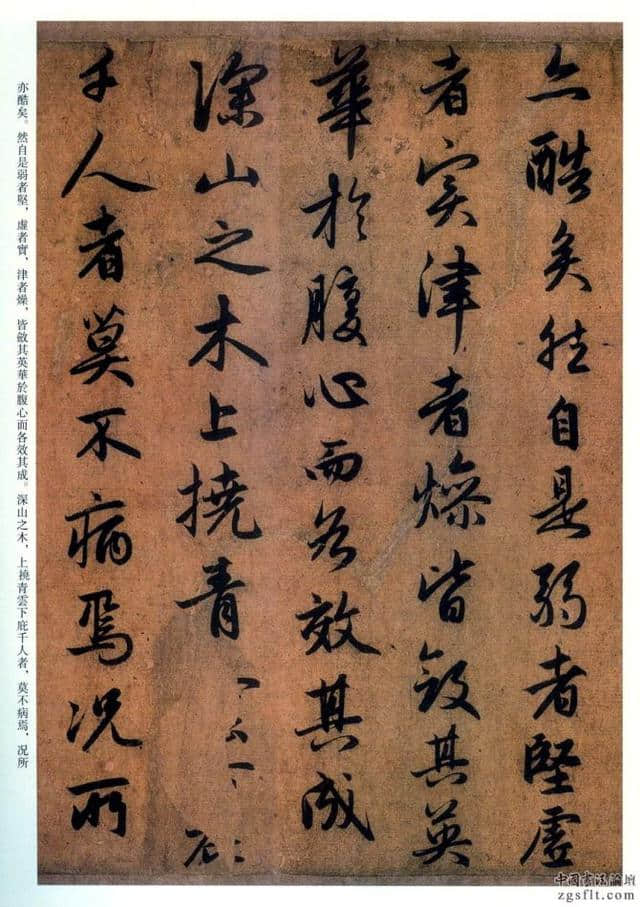 亦酷矣然自是弱者堅虛
者实津者燥皆斂其英
華於腹心而各效其成
深山之木上撓青
千人者莫不病焉况所
亦酷矣。然自是弱者堅，虛者實，津者燥，皆斂其英華於腹心而各效其成。深山之木，上撓青雲下庇千人者，莫不病焉，况所
中國書法論壇
zgsflt.com